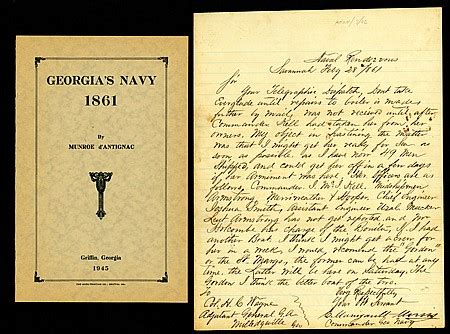 GEORGIA'S NAVY
1861
By
MUNROE d'ANTIGNAC
Griffin, Georgia
1945
Naval Rendezvous
Savannah Feby 28th 1861
Sir
Your Telegraphic Dispatch, dont take
Everglade until repairs to boiler is made,
further by mail, was not received until after
Commander Kell had taken her from her
owners. My object in the matter
was that I might get her ready for Sea as
soon as possible, as I have now 49 Men
Shipped, and could get her off in a few days
if her Armament was here. Her Officers are as
follows, Commander J. McI. Kell, Midshipmen
Armstrong, Merriweather & Hooper, Chief Engineer
Joshua Smith, Assistant Engineer
Lieut Armstrong has not reported and Mr
Holcombe has charge of the If I had
another Boat I think I might get a crew for
her in a week, I would recommend the "Gordon"
or the St. Marys, the former can be had at any
time, the Latter will be here on Saturday. The
Gordon I think the better boat of the two.
Very Respectfully
Your Obt Servant
To
Col. H. C. Wayne
Adjutant General Ga
Milledgeville Geo
Morris
Commander Geo Navy